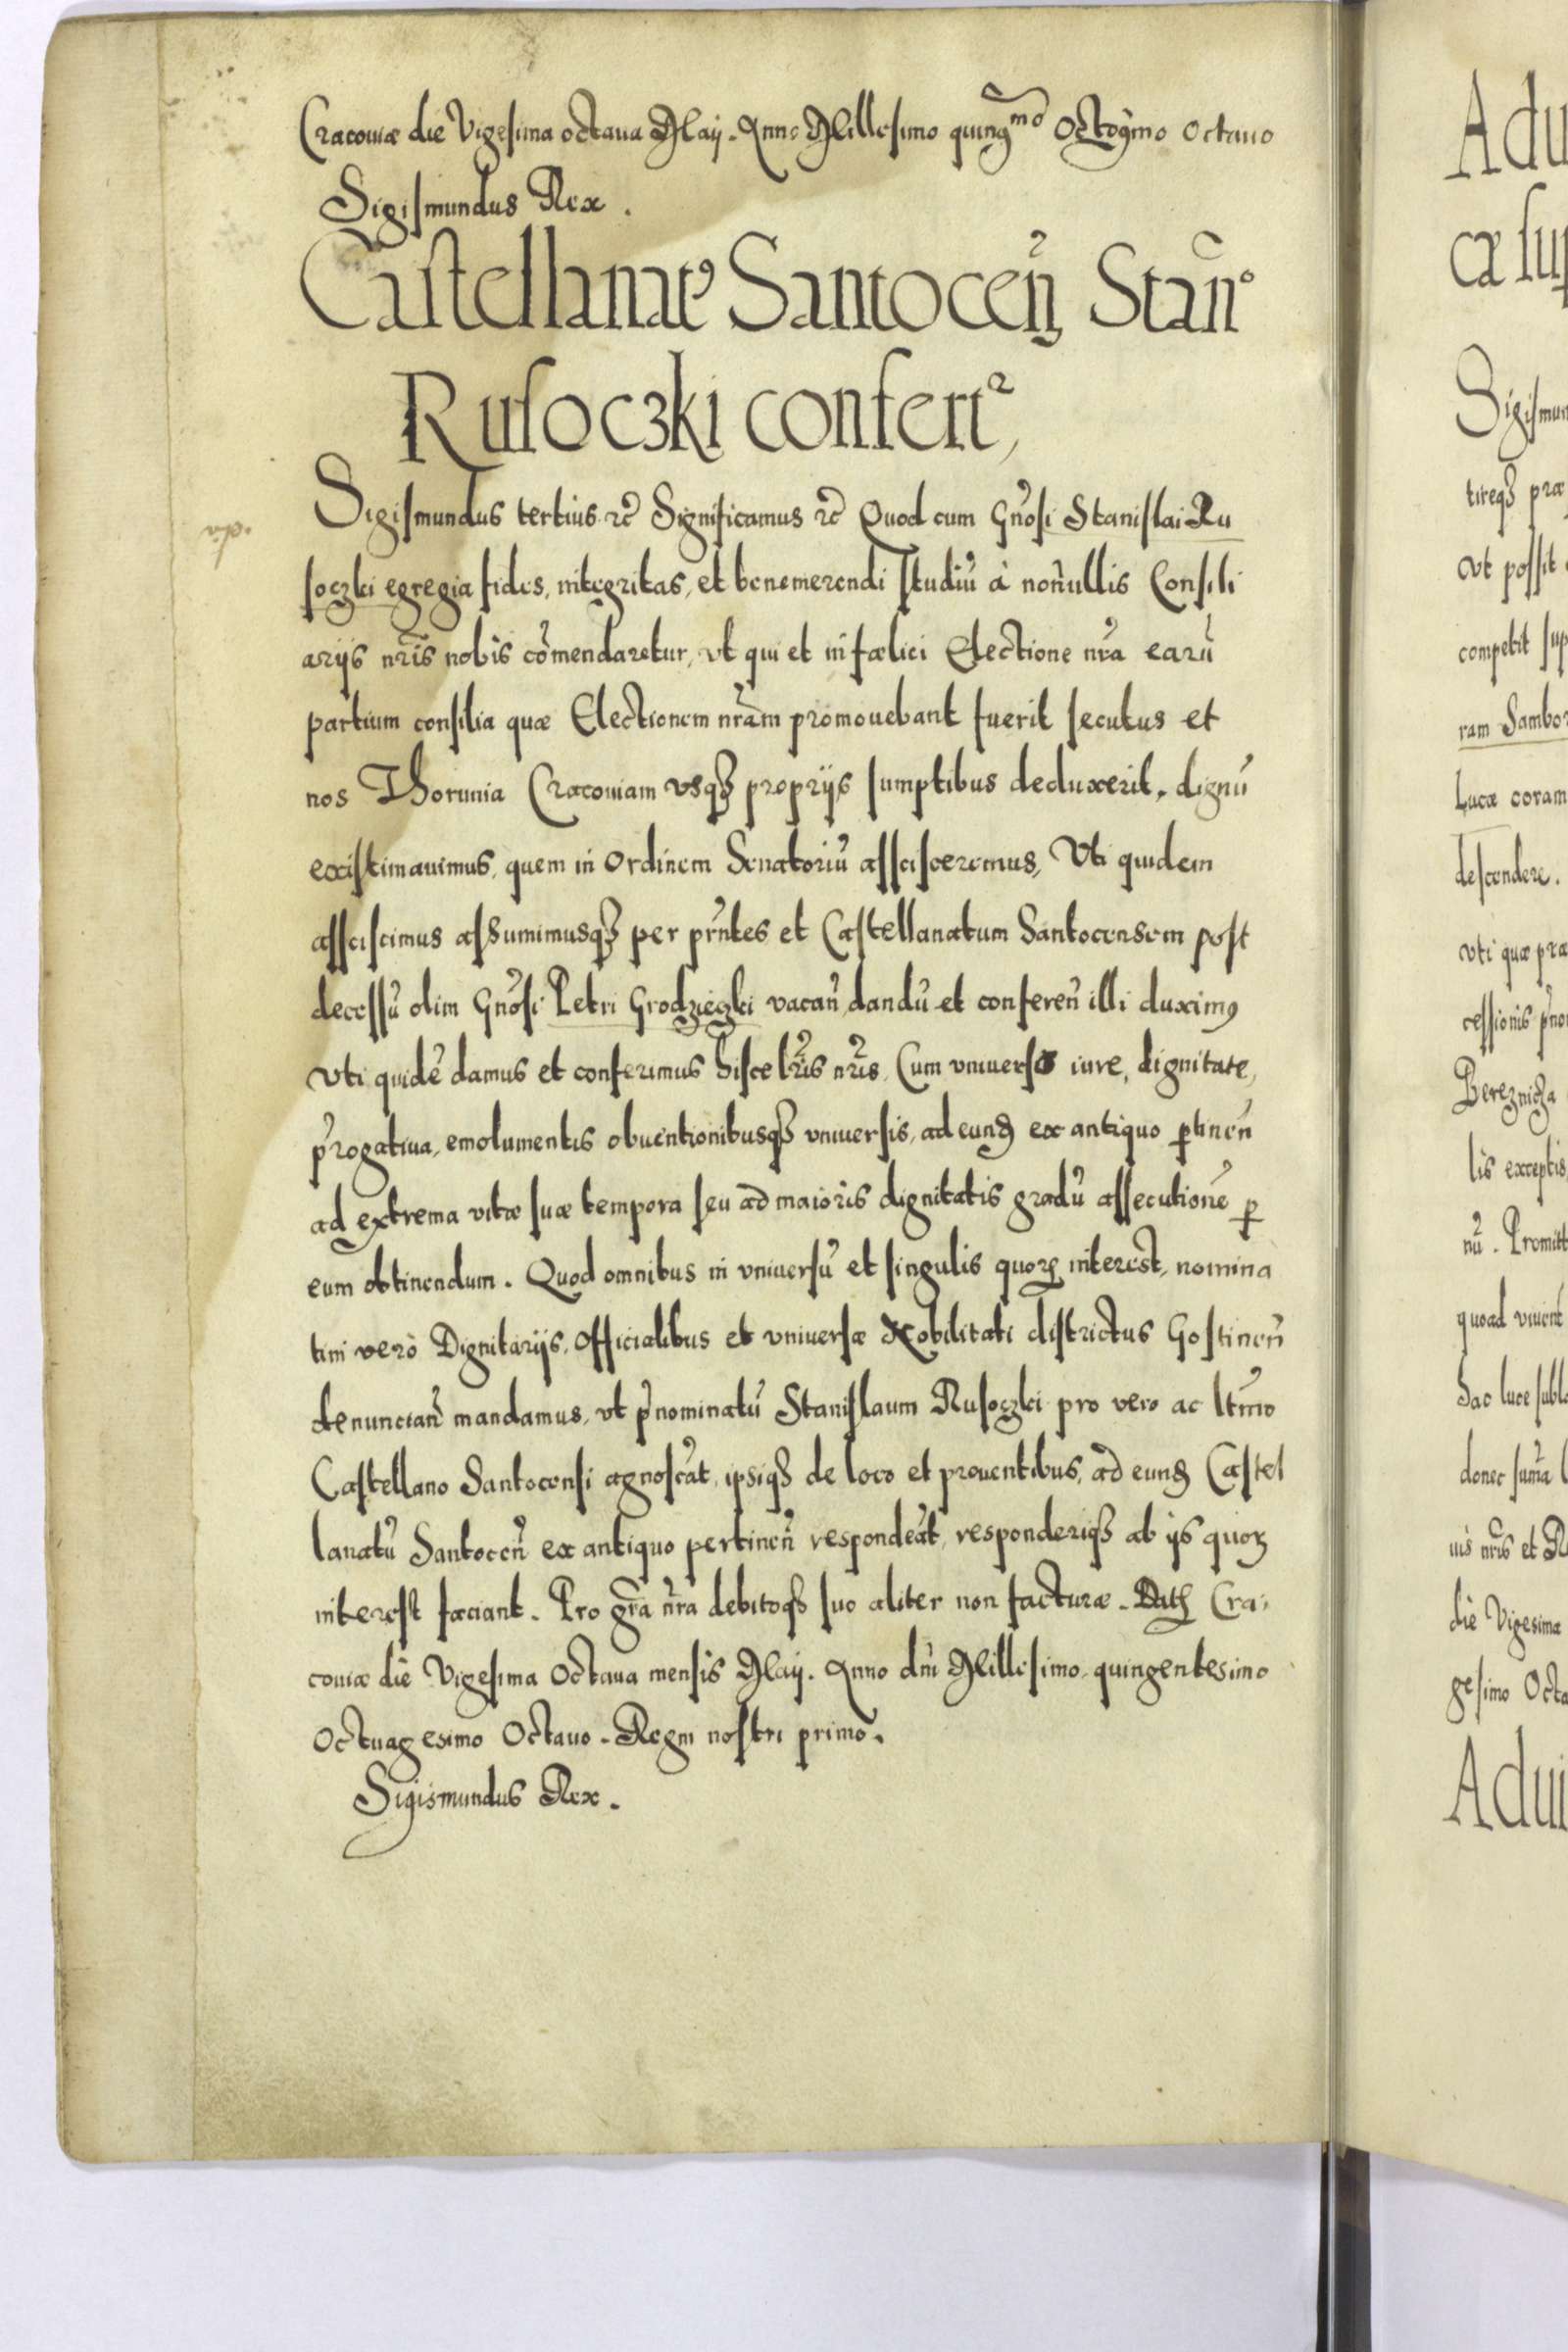 Cracouiæ die Vigesima octaua Maij. Anno Millesimo quingmo Octogimo Octauo
Sigismundus Rex.
Castellanatꝰ Santoceñ Stañ
Rusoczki confert᷑
Sigismundus tertius ꝛc̃ Significamus ꝛc̃ Quod cum Gñosi Stanislai Ru
soczki egregia fides, integritas, et benemerendi studiũ à noñullis Consili
arijs nr̃is nobis cõmendaretur, vt qui et in fælici Electione nr̃a earũ
partium consilia quæ Electionem nr̃am promouebant fuerit secutus et
nos Thorunia Cracouiam vsqꝫ proprijs sumptibus deduxerit, dignũ
existimauimus, quem in Ordinem Senatoriũ assisceremus, Vti quidem
assciscimus assumimusqꝫ per pr̃ntes et Castellanatum Santocensem post
decessũ olim Gñosi Petri Grodzieczki vacañ dandũ et confereñ illi duximꝰ
Vti quidẽ damus et conferimus hisce lr̃is nr̃is. Cum vniuerso iure, dignitate,
p̃rogatiua, emolumentis obuentionibusqꝫ vniuersis, ad eund ex antiquo ꝑtineñ
ad extrema vitæ suæ tempora seu ad maioris dignitatis gradũ assecutionẽ ꝑ
eum obtinendum. Quod omnibus in vniuersũ et singulis quoꝝ interest, nomina
tim verò Dignitarijs, Officialibus et vniuersæ Nobilitati districtus Gostineñ
denunciañ mandamus, vt p̃nominatũ Stanislaum Rusoczki pro vero ac ltĩmo
Castellano Santocensi agnoscãt, ipsiqꝫ de loco et prouentibus, ad eund Castel
lanatũ Santoceñ ex antiquo pertineñ respondeãt, responderiqꝫ ab ijs quoꝝ
interest faciant. Pro gr̃a nr̃a debitoqꝫ suo aliter non facturæ. Dat Cra-
couiæ die Vigesima Octaua mensis Maij. Anno dñi Millesimo quingentesimo
Octuagesimo Octauo. Regni nostri primo.
Sigismundus Rex.
Adu
cæ sup
Sigismun
tireqꝫ præ
Vt possit
competit sup
ram Sambor
Lucæ coram
descendere.
vti quæ præ
cessionis p̃no
Bereznicza
lis exceptis
nũ. Promitt
quoad viuent
hac luce subla
donec sum̃a
uis nr̃is et R
die Vigesima
gesimo Octa
Adui